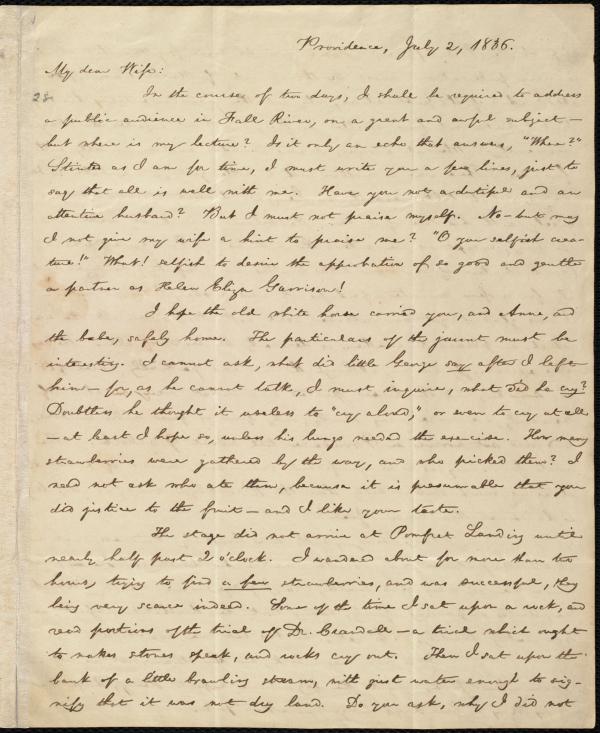 Providence, July 2, 1836.
My dear Wife:
28
In the course of two days, I shall be required to address
a public audience in Fall River, on a great and awful subject—
but where is my lecture? Is it only an echo that answers, "Where?"
Stinted as I am for time, I must write you a few lines, just to
say that all is well with me. Have you not a dutiful and an
attentive husband? But I must not praise myself. No—but may
I not give my wife a hint to praise me? "O you selfish crea-
ture!" What! selfish to desire the approbation of so good and gentle
a partner as Helen Eliza Garrison!
I hope the old white horse carried you, and Anne, and
the babe, safely home. The particulars of the jaunt must be
interesting. I cannot ask, what did little George say after I left
him—for, as he cannot talk, I must inquire, what did he cry?
Doubtless he thought it useless to "cry aloud," or even to cry at all
—at least I hope so, unless his lungs needed the exercise. How many
strawberries were gathered by the way, and who picked them? I
need not ask who ate them, because it is presumable that you
did justice to the fruit—and I like your taste.
The stage did not arrive at Pomfret Landing until
nearly half past 2 o'clock. I wandered about for more than two
hours, trying to find a few strawberries, and was successful, they
being very scarce indeed. Some of the time I sat upon a rock, and
read portions of the trial of Dr. Crandall—a trial which ought
to make stones speak, and rocks cry out. Then I sat upon the
bank of a little brawling stream, with just water enough to sig-
nify that it was not dry land. Do you ask, why I did not